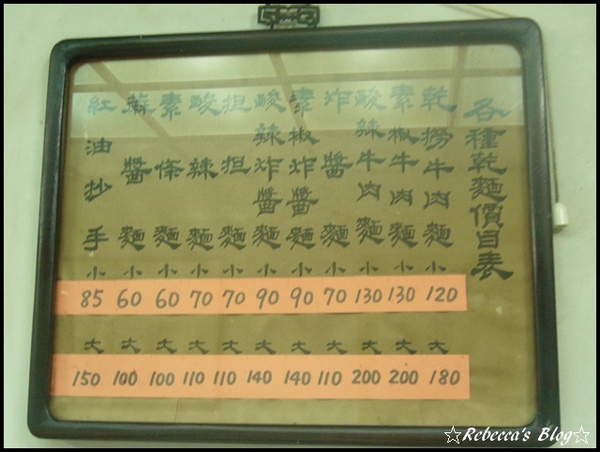 各種乾麵價目表
乾撈牛肉麵 小 120 大 180
素椒牛肉麵 小 130 大 200
酸辣牛肉麵 小 130 大 200
炸醬麵 小 70 大 110
素椒炸醬麵 小 90 大 140
酸辣炸醬麵 小 90 大 140
担担麵 小 70 大 110
酸辣麵 小 70 大 110
素條麵 小 60 大 100
蔴醬麵 小 60 大 100
紅油抄手 小 85 大 150
☆Rebecca's Blog☆